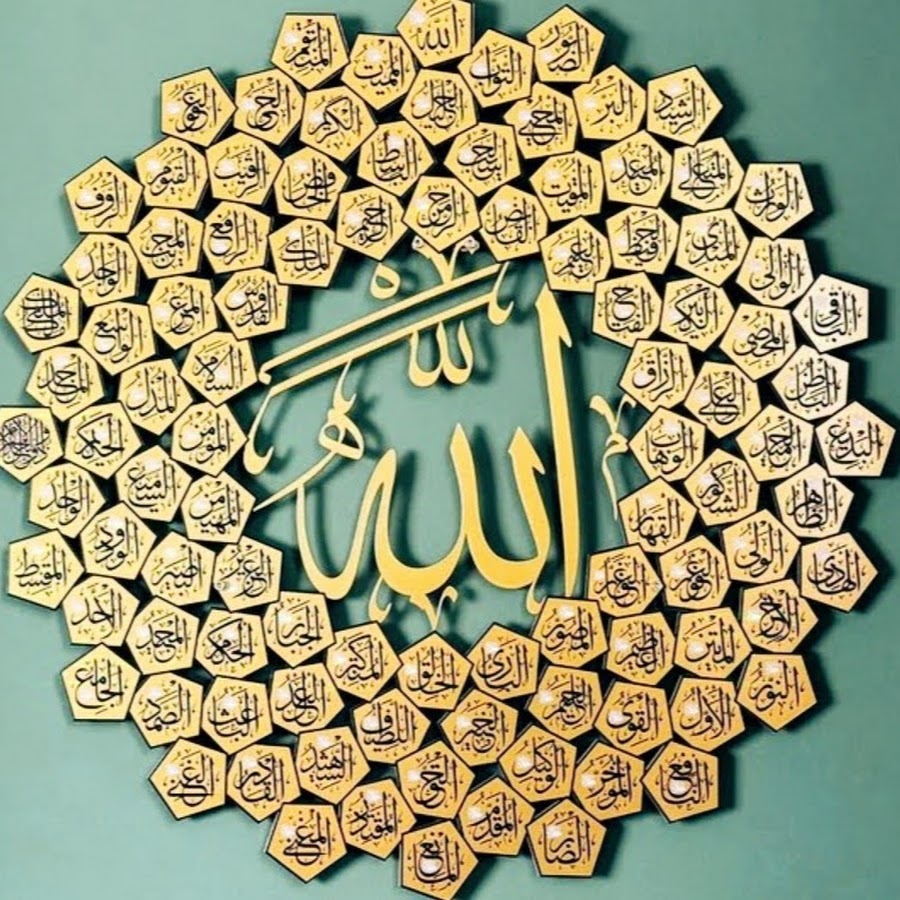 الله
الصبور
التواب
المميت
المنتقم
الرشيد
البر
المحيي
الجليل
الكريم
الحي
العفو
المتعالي
المعيد
المقيت
الباسط
القيوم
الرؤوف
الوارث
الحفيظ
القابض
الرحمن
الرحيم
الملك
الرافع
الماجد
الواجد
الوالي
المبدئ
العليم
القدوس
الواسع
مالك الملك
الباقي
المحصي
الفتاح
السلام
الرزاق
البديع
الوهاب
المؤمن
الحكيم
الشكور
السميع
المهيمن
الواحد
الظاهر
القهار
الودود
المقسط
الهادي
الولي
الغفور
الغفار
البصير
العزيز
الأحد
المتين
العظيم
المصور
الجبار
الحكم
المجيد
الجامع
النور
الأول
القوي
البارئ
الخالق
المتكبر
الباعث
الصمد
الخبير
اللطيف
النافع
المؤخر
الوكيل
الشهيد
القادر
الغني
المقدم
المقتدر
المغني
المانع
الضار
الله